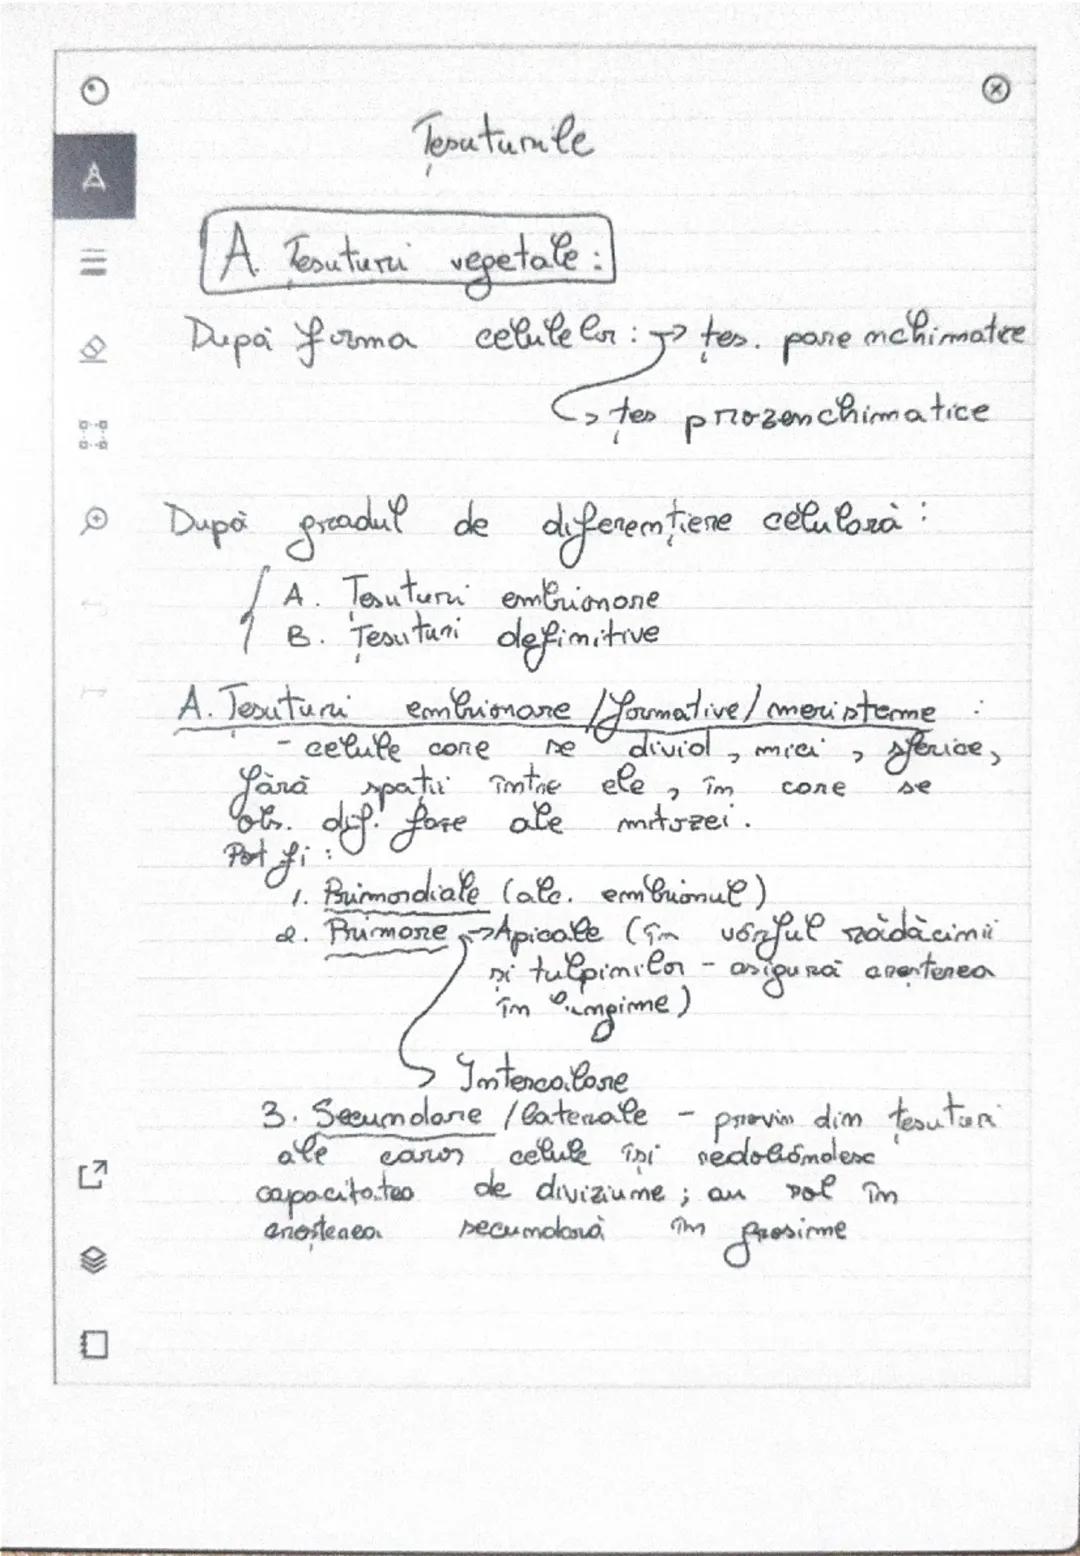 Țesuturile
A. Țesuturi vegetale:
După forma celulelor: → țes. parenchimatice
↳ țes prozenchimatice
După gradul de diferențiere celulară:
A. Țesuturi embrionare
B. Țesuturi definitive
A. Țesuturi embrionare / formative / meristeme :
- celule care se divid, mici, sferice,
fără spații între ele, în care se
obs. dif. faze ale mitozei.
Pot fi:
1. Primordiale (alc. embrionul)
2. Primare → Apicale (în vârful rădăcinii
și tulpinilor - asigură creșterea
în lungime)
↳ Intercalare
3. Secundare / laterale - provin din țesuturi
ale căror celule își redobândesc
capacitatea de diviziune; au rol în
creșterea secundară în grosime